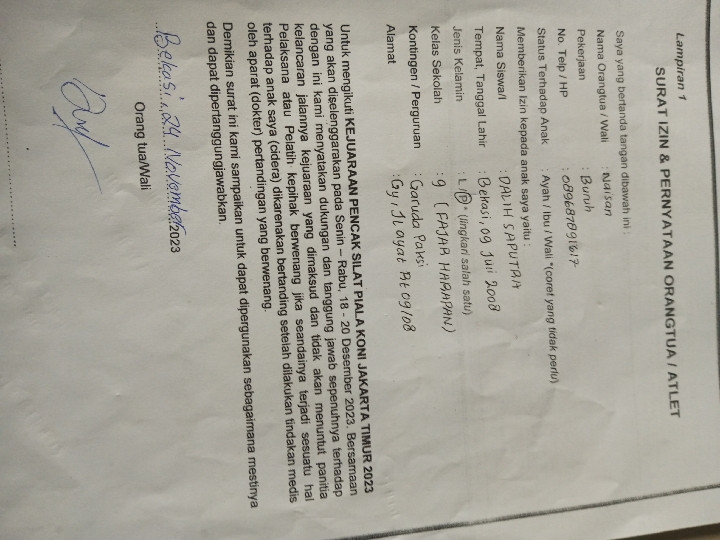 Lampiran 1
SURAT IZIN & PERNYATAAN ORANGTUA / ATLET
Saya yang bertanda tangan dibawah ini :
Nama Orangtua / Wali : Naison
Pekerjaan : Buruh
No. Telp / HP : 089687891617
Status Terhadap Anak : Ayah / Ibu / Wali *(coret yang tidak perlu)
Memberikan Izin kepada anak saya yaitu :
Nama Siswa/I : DALIH SAPUTRA
Tempat, Tanggal Lahir : Bekasi, 09 Juli 2008
Jenis Kelamin : L / P * (lingkari salah satu)
Kelas Sekolah : 9 (FAJAR HARAPAN)
Kontingen / Perguruan : Garuda Paksi
Alamat : Gg, Jl ayat Rt 09/08
Untuk mengikuti KEJUARAAN PENCAK SILAT PIALA KONI JAKARTA TIMUR 2023
yang akan diselenggarakan pada Senin – Rabu, 18 - 20 Desember 2023. Bersamaan
dengan ini kami menyatakan dukungan dan tanggung jawab sepenuhnya terhadap
kelancaran jalannya kejuaraan yang dimaksud dan tidak akan menuntut panitia
Pelaksana atau Pelatih kepihak berwenang jika seandainya terjadi sesuatu hal
terhadap anak saya (cidera) dikarenakan bertanding setelah dilakukan tindakan medis
oleh aparat (dokter) pertandingan yang berwenang.
Demikian surat ini kami sampaikan untuk dapat dipergunakan sebagaimana mestinya
dan dapat dipertanggungjawabkan.
Bekasi, 24 November 2023
Orang tua/Wali